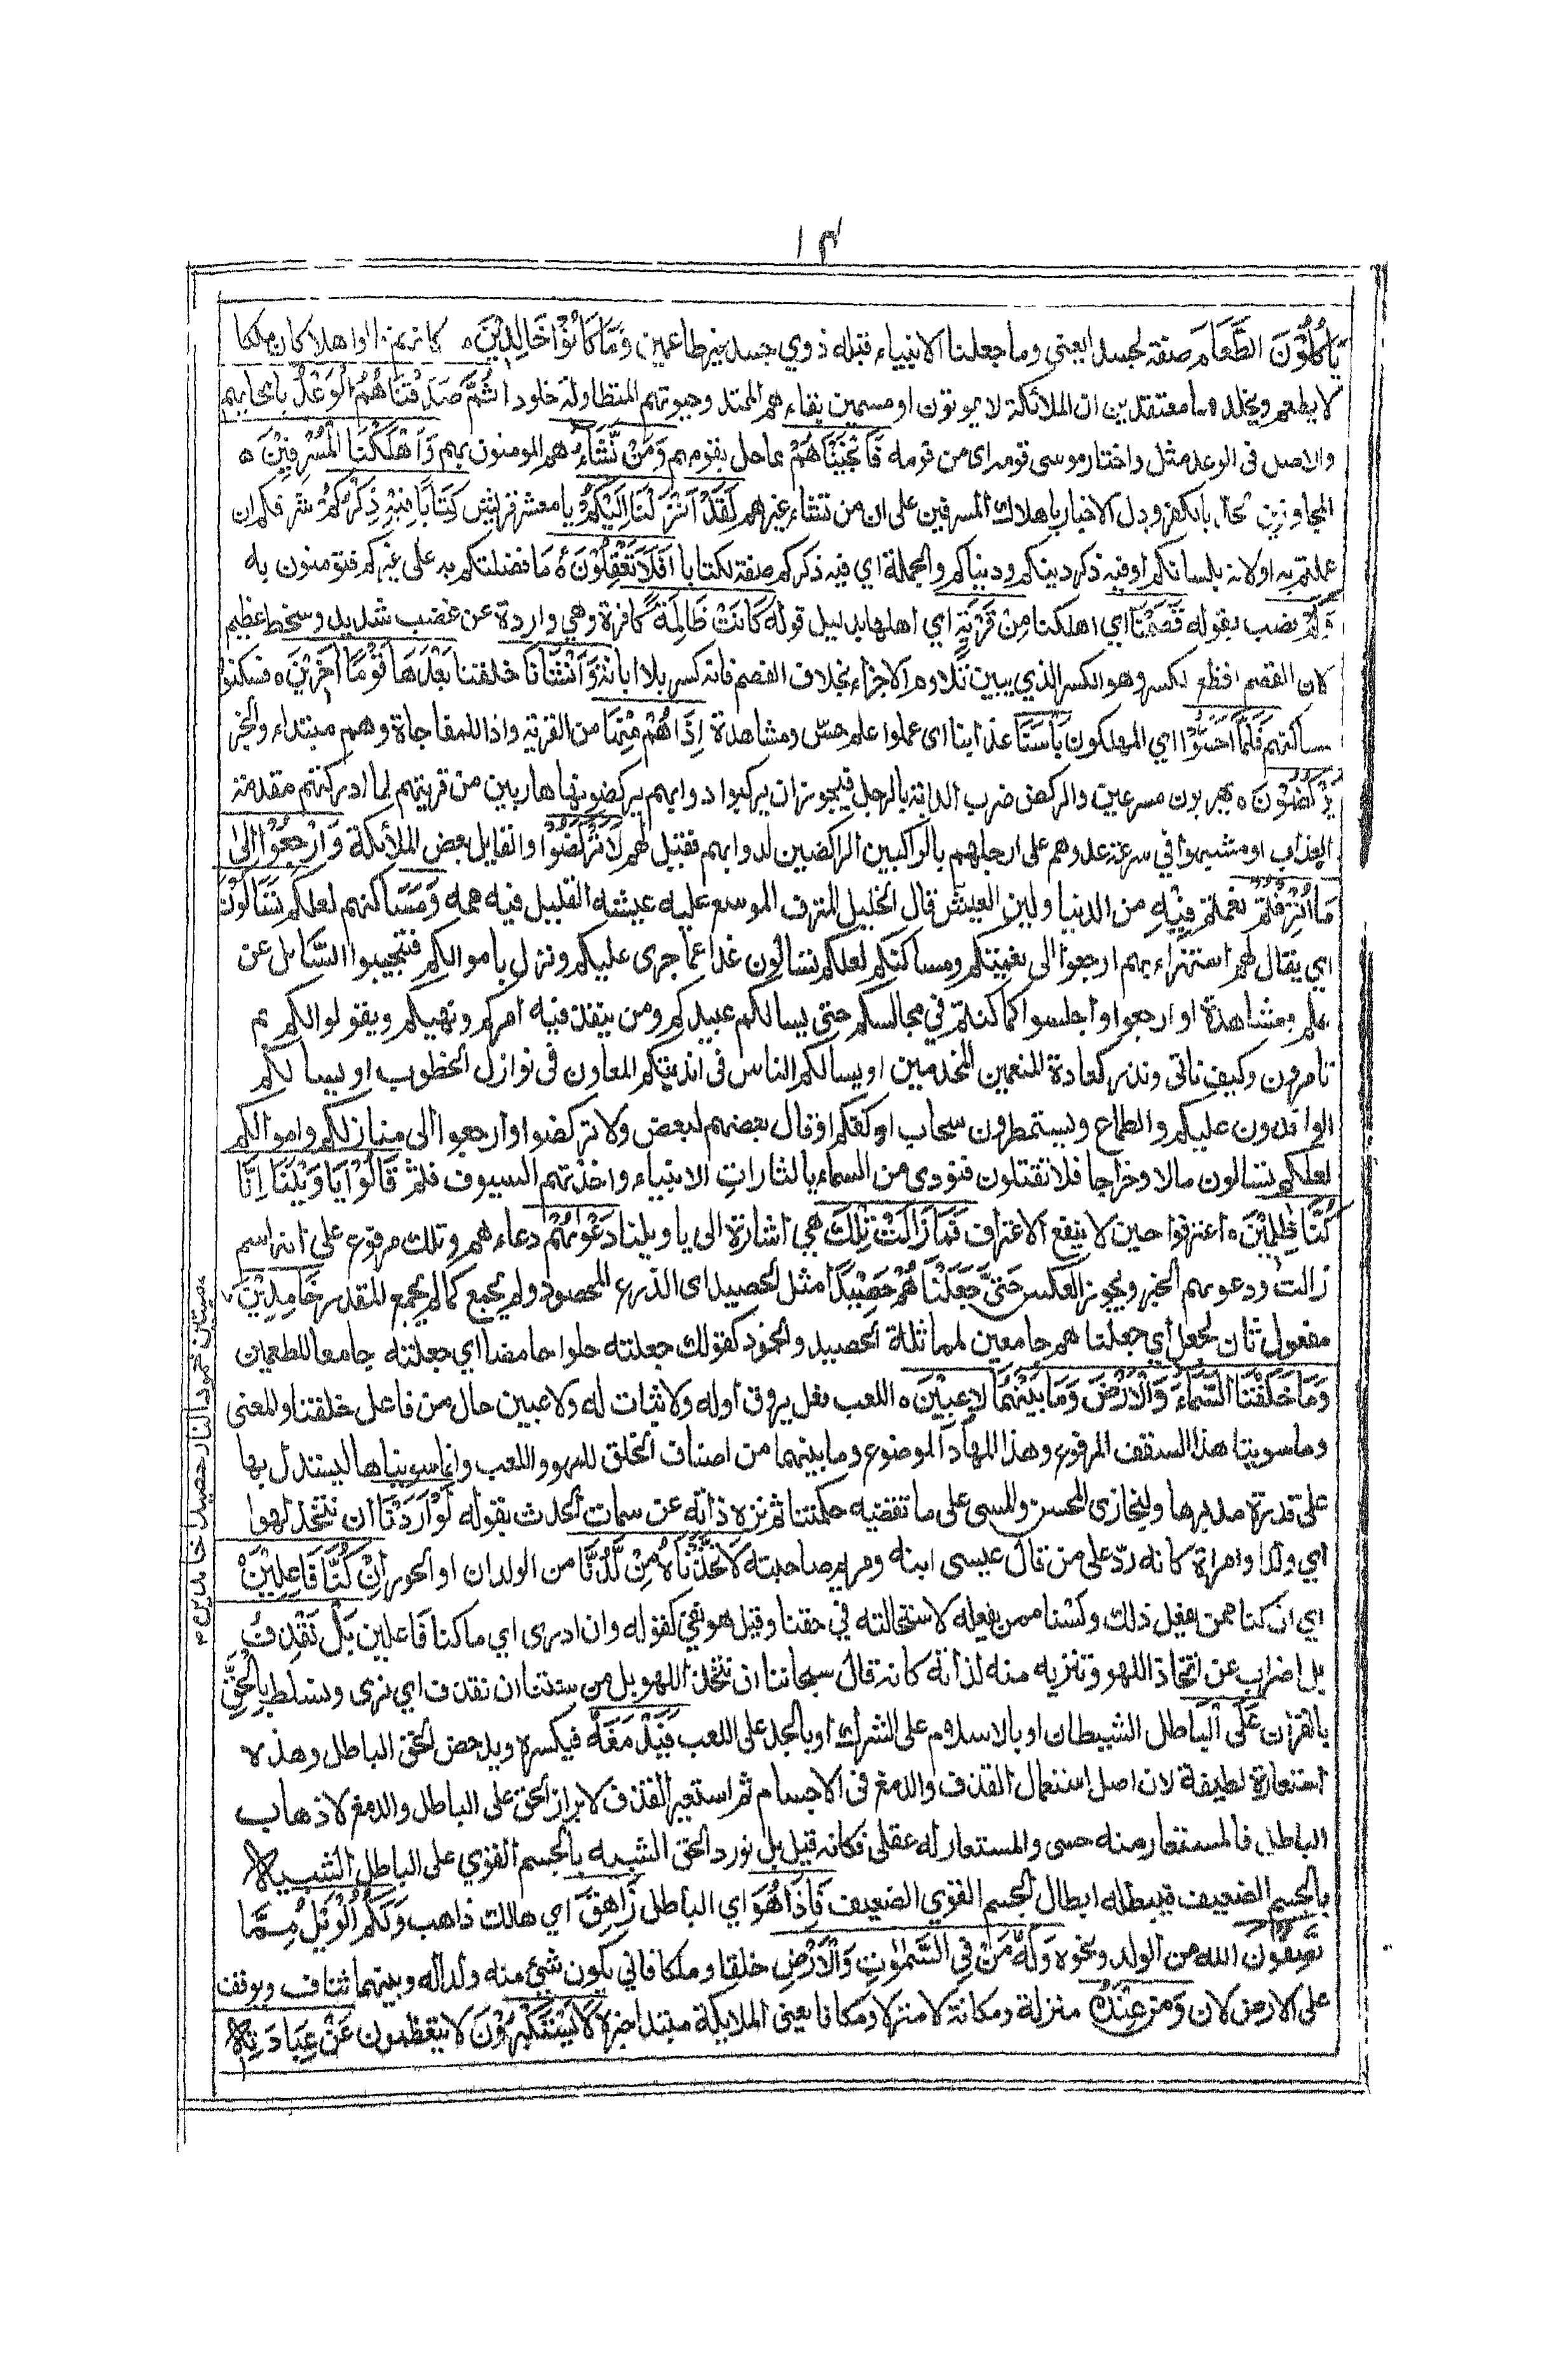 ١٣
يَأْكُلُوْنَ الطَّعَامَ صفة لجسدا يعني وما جعلنا الانبياء قبله ذوي جسد غير طاعمين وَمَا كَانُوْا خَالِدِيْنَ ه كانهم قالوا هلا كان ملكا
لا يطعم ويخلد اما معتقدين ان الملائكة لا يموتون او مسمين بقاءهم الممتد وحيوتهم المتطاولة خلودا ثُمَّ صَدَقْنَاهُمُ الْوَعْدَ بانجائهم
والاصل في الوعد مثل واختار موسى قومه اى من قومه فَاَنْجَيْنَاهُمْ مما حل بقومهم وَمَنْ نَّشَاءُ هم المومنون بهم وَاَهْلَكْنَا الْمُسْرِفِيْنَ ه
المجاوزين الحد بالكفر ودل الاخبار باهلاك المسرفين على ان من نشاء غيرهم لَقَدْ اَنْزَلْنَا اِلَيْكُمْ يا معشر قريش كِتَابًا فِيْهِ ذِكْرُكُمْ شرفكم ان
عملتم به او لانه بلسانكم او فيه ذكر دينكم ودنياكم والجملة اي فيه ذكركم صفة لكتابا اَفَلَا تَعْقِلُوْنَ ه ما فضلتكم به على غيركم فتومنون به
وَكَمْ نصب بقوله قَصَمْنَا اي اهلكنا مِنْ قَرْيَةٍ اي اهلها بدليل قوله كَانَتْ ظَالِمَةً كافرة وهي واردة عن غضب شديد وسخط عظيم
لان القصم افظع الكسر وهو الكسر الذي يبين تلاوم الاجزاء بخلاف الفصم فانه كسر بلا ابانة وَاَنْشَأْنَا خلقنا بَعْدَهَا قَوْمًا اٰخَرِيْنَ ه فسكنوا
مساكنهم فَلَمَّا اَحَسُّوْا اي المهلكون بَأْسَنَا عذابنا اى عملوا علم حسّ ومشاهدة اِذَا هُمْ مِّنْهَا من القرية واذا للمفاجاة وهم مبتداء والخبر
يَرْكُضُوْنَ ه يهربون مسرعين والركض ضرب الدابة بالرجل فيجوز ان يركبوا دوابهم يركضونها هاربين من قريتهم لما ادركتهم مقدمة
العذاب او مشبهوا في سرعة عدوهم على ارجلهم بالراكبين الراكضين لدوابهم فقيل لهم لَا تَرْكُضُوْا والقايل بعض الملائكة وَارْجِعُوْا اِلٰى
مَا اُتْرِفْتُمْ نعمتم فِيْهِ من الدنيا ولين العيش قال الخليل المترف الموسع عليه عيشه القليل فيه همه وَمَسَاكِنِهم لعلكم تُسْاَلُوْنَ
اي يقال لهم استهزاء بهم ارجعوا الى نعيمكم ومساكنكم لعلكم تسالون غدا عما جرى عليكم ونزل باموالكم فتجيبوا السَّائل عن
علم ومشاهدة او ارجعوا واجلسوا كما كنتم في مجالسكم حتى يسالكم عبيدكم ومن ينفذ فيه امركم ونهيكم ويقولوا لكم بم
تامرون وكيف ناتي ونذر كعادة المنعمين المخدمين او يسالكم الناس في انديتكم المعاون في نوازل الخطوب او يسالكم
الوافدون عليكم والطماع ويستمطرون سحاب اكفكم او قال بعضهم لبعض ولا تركضوا وارجعوا الى منازلكم واموالكم
لعلكم تسالون مالا وخراجا فلا تقتلون فنودى من السماء يالثارات الانبياء واخذتهم السيوف فثم قَالُوْا يَا وَيْلَنَا اِنَّا
كُنَّا ظٰلِمِيْنَ ه اعترفوا حين لا ينفع الاعتراف فَمَا زَالَتْ تِلْكَ هي اشارة الى يا ويلنا دَعْوٰىهُمْ دعاءهم وتلك مرفوع على انه اسم
زالت ودعوىهم الخبر ويجوز العكس حَتّٰى جَعَلْنَاهُمْ حَصِيْدًا مثل الحصيد اى الذرع المحصود ولم يجمع كما لم يجمع المقدر خَامِدِيْنَ ٧
مفعول ثان لجعل اي جعلنا هم جامعين لمماثلة الحصيد والخمود كقولك جعلته حلوا حامضا اي جعلته جامعا للطعمين
وَمَا خَلَقْنَا السَّمَاءَ وَالْاَرْضَ وَمَا بَيْنَهُمَا لَاعِبِيْنَ ه اللعب فعل يروق اوله ولا ثبات له ولاعبين حال من فاعل خلقنا والمعنى
وما سوينا هذا السقف المرفوع وهذا المهاد الموضوع وما بينهما من اصناف الخلق للهو واللعب وانما سويناها ليستدل بها
على قدرة مدبرها وليجازى المحسن والمسى على ما تقتضيه حكمتنا ثم نزه ذاته عن سمات الحدث بقوله لَوْ اَرَدْنَا ان نتخذ لهوا
اي ولدا وامراة كانه ردّ على من قال عيسى ابنه ومريم صاحبته لَاتَّخَذْنَاهُ مِنْ لَّدُنَّا من الولدان او الحور اِنْ كُنَّا فَاعِلِيْنَ ه
اي ان كنا ممن يفعل ذلك ولسنا ممن يفعله لاستحالته في حقنا وقيل هو نفي كقوله وان ادرى اي ما كنا فاعلين بَلْ نَقْذِفُ
بل اضراب عن اتخاذ اللهو وتنزيه منه لذاته كانه قال سبحاننا ان نتخذ اللهو بل من سنتنا ان نقذف اي نرمى ونسلط بِالْحَقِّ
بالقران عَلَى الْبَاطِل الشيطان او بالاسلام على الشرك او بالجد على اللعب فَيَدْمَغُهٗ فيكسره ويدحض الحق الباطل وهذه
استعارة لطيفة لان اصل استعمال القذف والدمغ في الاجسام ثم استعير القذف لايراد الحق على الباطل والدمغ لاذهاب
الباطل فالمستعار منه حسى والمستعار له عقلى فكانه قيل بل نورد الحق الشبيه بالجسم القوي على الباطل الشبيه
بالجسم الضعيف فيبطله ابطال الجسم القوي الضعيف فَاِذَا هُوَ اي الباطل زَاهِقٌ اي هالك ذاهب وَلَكُمُ الْوَيْلُ مِمَّا
تَصِفُوْنَ الله من الولد ونحوه وَلَهٗ مَنْ فِي السَّمٰوٰتِ وَالْاَرْضِ خلقا وملكا فاني يكون شيئ منه ولدا له وبينهما تناف ويوقف
على الارض لان وَمَنْ عِنْدَهٗ منزلة ومكانة لا منزلا ومكانا يعني الملايكة مبتدا خبره لَا يَسْتَكْبِرُوْنَ لا يتعظمون عَنْ عِبَادَتِهٖ